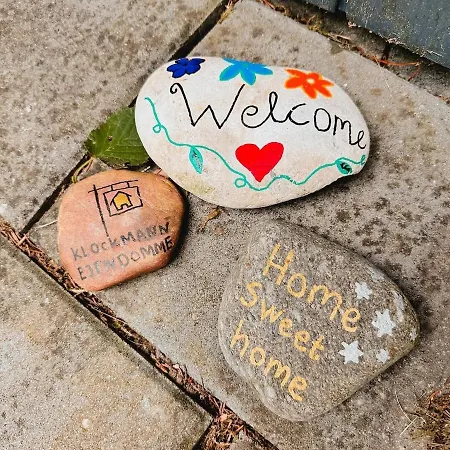 Welcome
KLOCKMANN'
EJENDOMME
Home
sweet
home